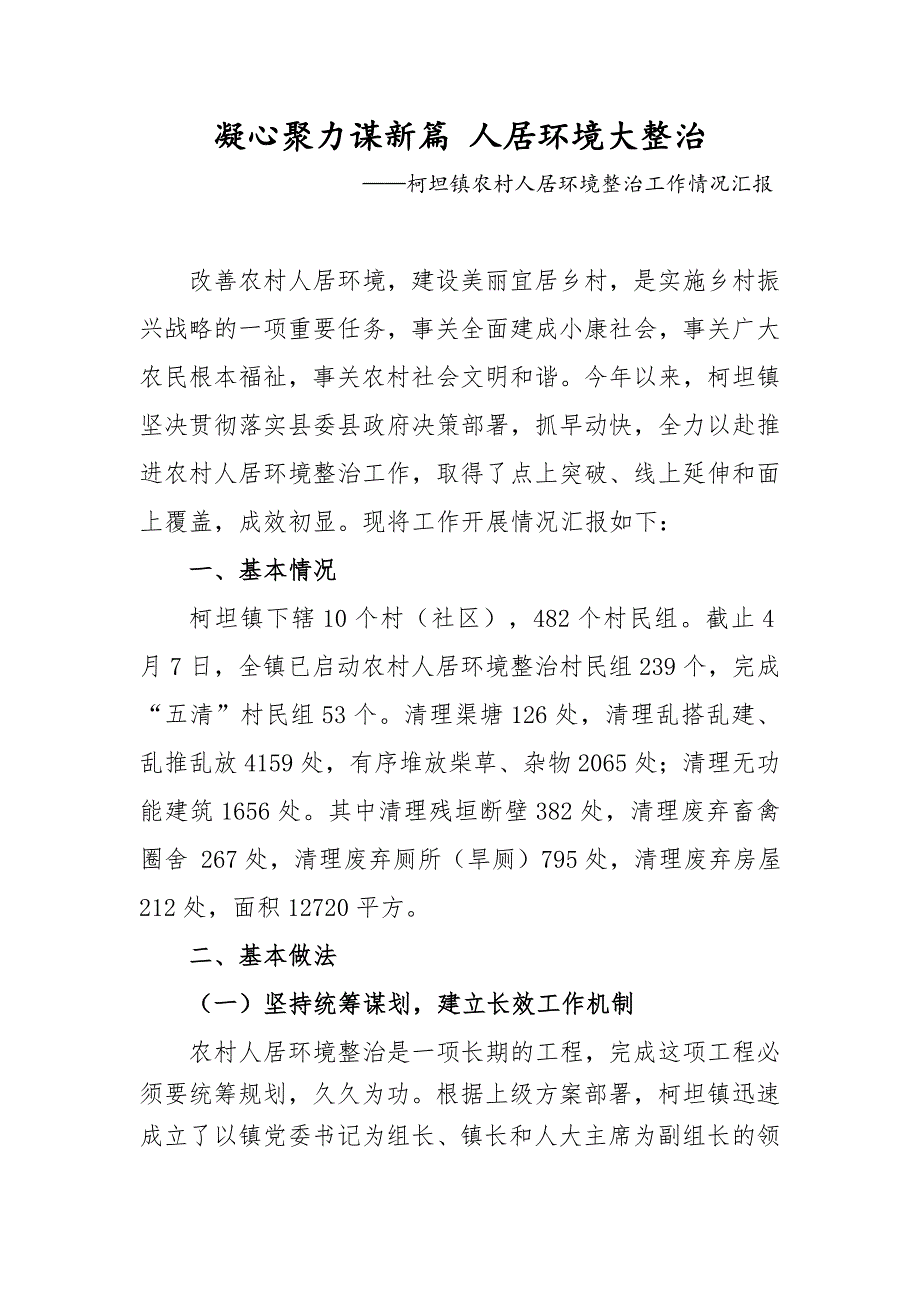 凝心聚力谋新篇 人居环境大整治
——柯坦镇农村人居环境整治工作情况汇报
改善农村人居环境，建设美丽宜居乡村，是实施乡村振
兴战略的一项重要任务，事关全面建成小康社会，事关广大
农民根本福祉，事关农村社会文明和谐。今年以来，柯坦镇
坚决贯彻落实县委县政府决策部署，抓早动快，全力以赴推
进农村人居环境整治工作，取得了点上突破、线上延伸和面
上覆盖，成效初显。现将工作开展情况汇报如下：
一、基本情况
柯坦镇下辖 10 个村（社区），482 个村民组。截止 4
月 7 日，全镇已启动农村人居环境整治村民组 239 个，完成
“五清”村民组 53 个。清理渠塘 126 处，清理乱搭乱建、
乱推乱放 4159 处，有序堆放柴草、杂物 2065 处；清理无功
能建筑 1656 处。其中清理残垣断壁 382 处，清理废弃畜禽
圈舍 267 处，清理废弃厕所（旱厕）795 处，清理废弃房屋
212 处，面积 12720 平方。
二、基本做法
（一）坚持统筹谋划，建立长效工作机制
农村人居环境整治是一项长期的工程，完成这项工程必
须要统筹规划，久久为功。根据上级方案部署，柯坦镇迅速
成立了以镇党委书记为组长、镇长和人大主席为副组长的领